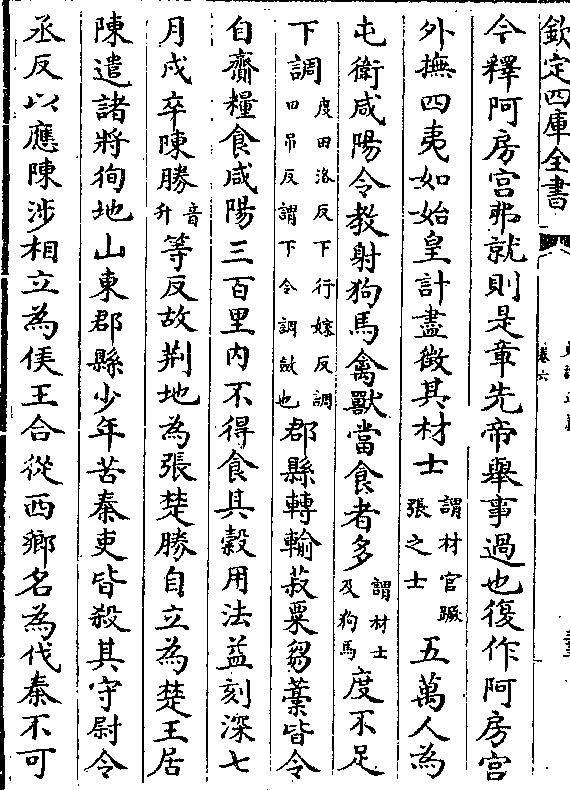 欽定四庫全書
今釋阿房宮弗就則是章先帝舉事過也復作阿房宮
外撫四夷如始皇計盡徵其材士謂材官蹶張之士五萬人為
屯衛咸陽令教射狗馬禽獸當食者多謂材士及狗馬度不足
下調度田洛反下行嫁反調田吊反謂下令調斂也郡縣轉輸菽粟芻藁皆令
自齎糧食咸陽三百里内不得食其穀用法益刻深七
月戍卒陳勝音升等反故荆地為張楚勝自立為楚王居
陳遣諸將徇地山東郡縣少年苦秦吏皆殺其守尉令
丞反以應陳涉相立為侯王合從西鄉名為伐秦不可